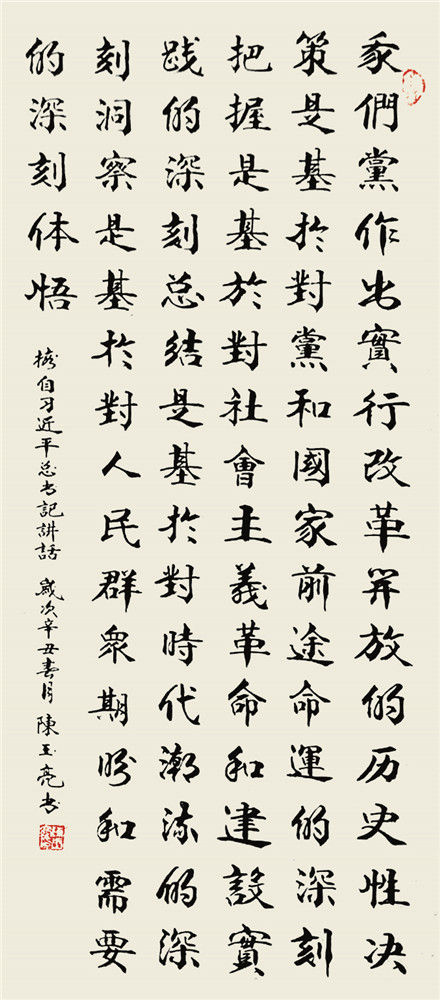 我們黨作出實行改革開放的历史性决
策是基於對黨和國家前途命運的深刻
把握是基於對社會主義革命和建設實
践的深刻总结是基於對時代潮流的深
刻洞察是基於對人民群眾期盼和需要
的深刻体悟
摘自习近平总书记讲話 歲次辛丑春月陳玉亮书